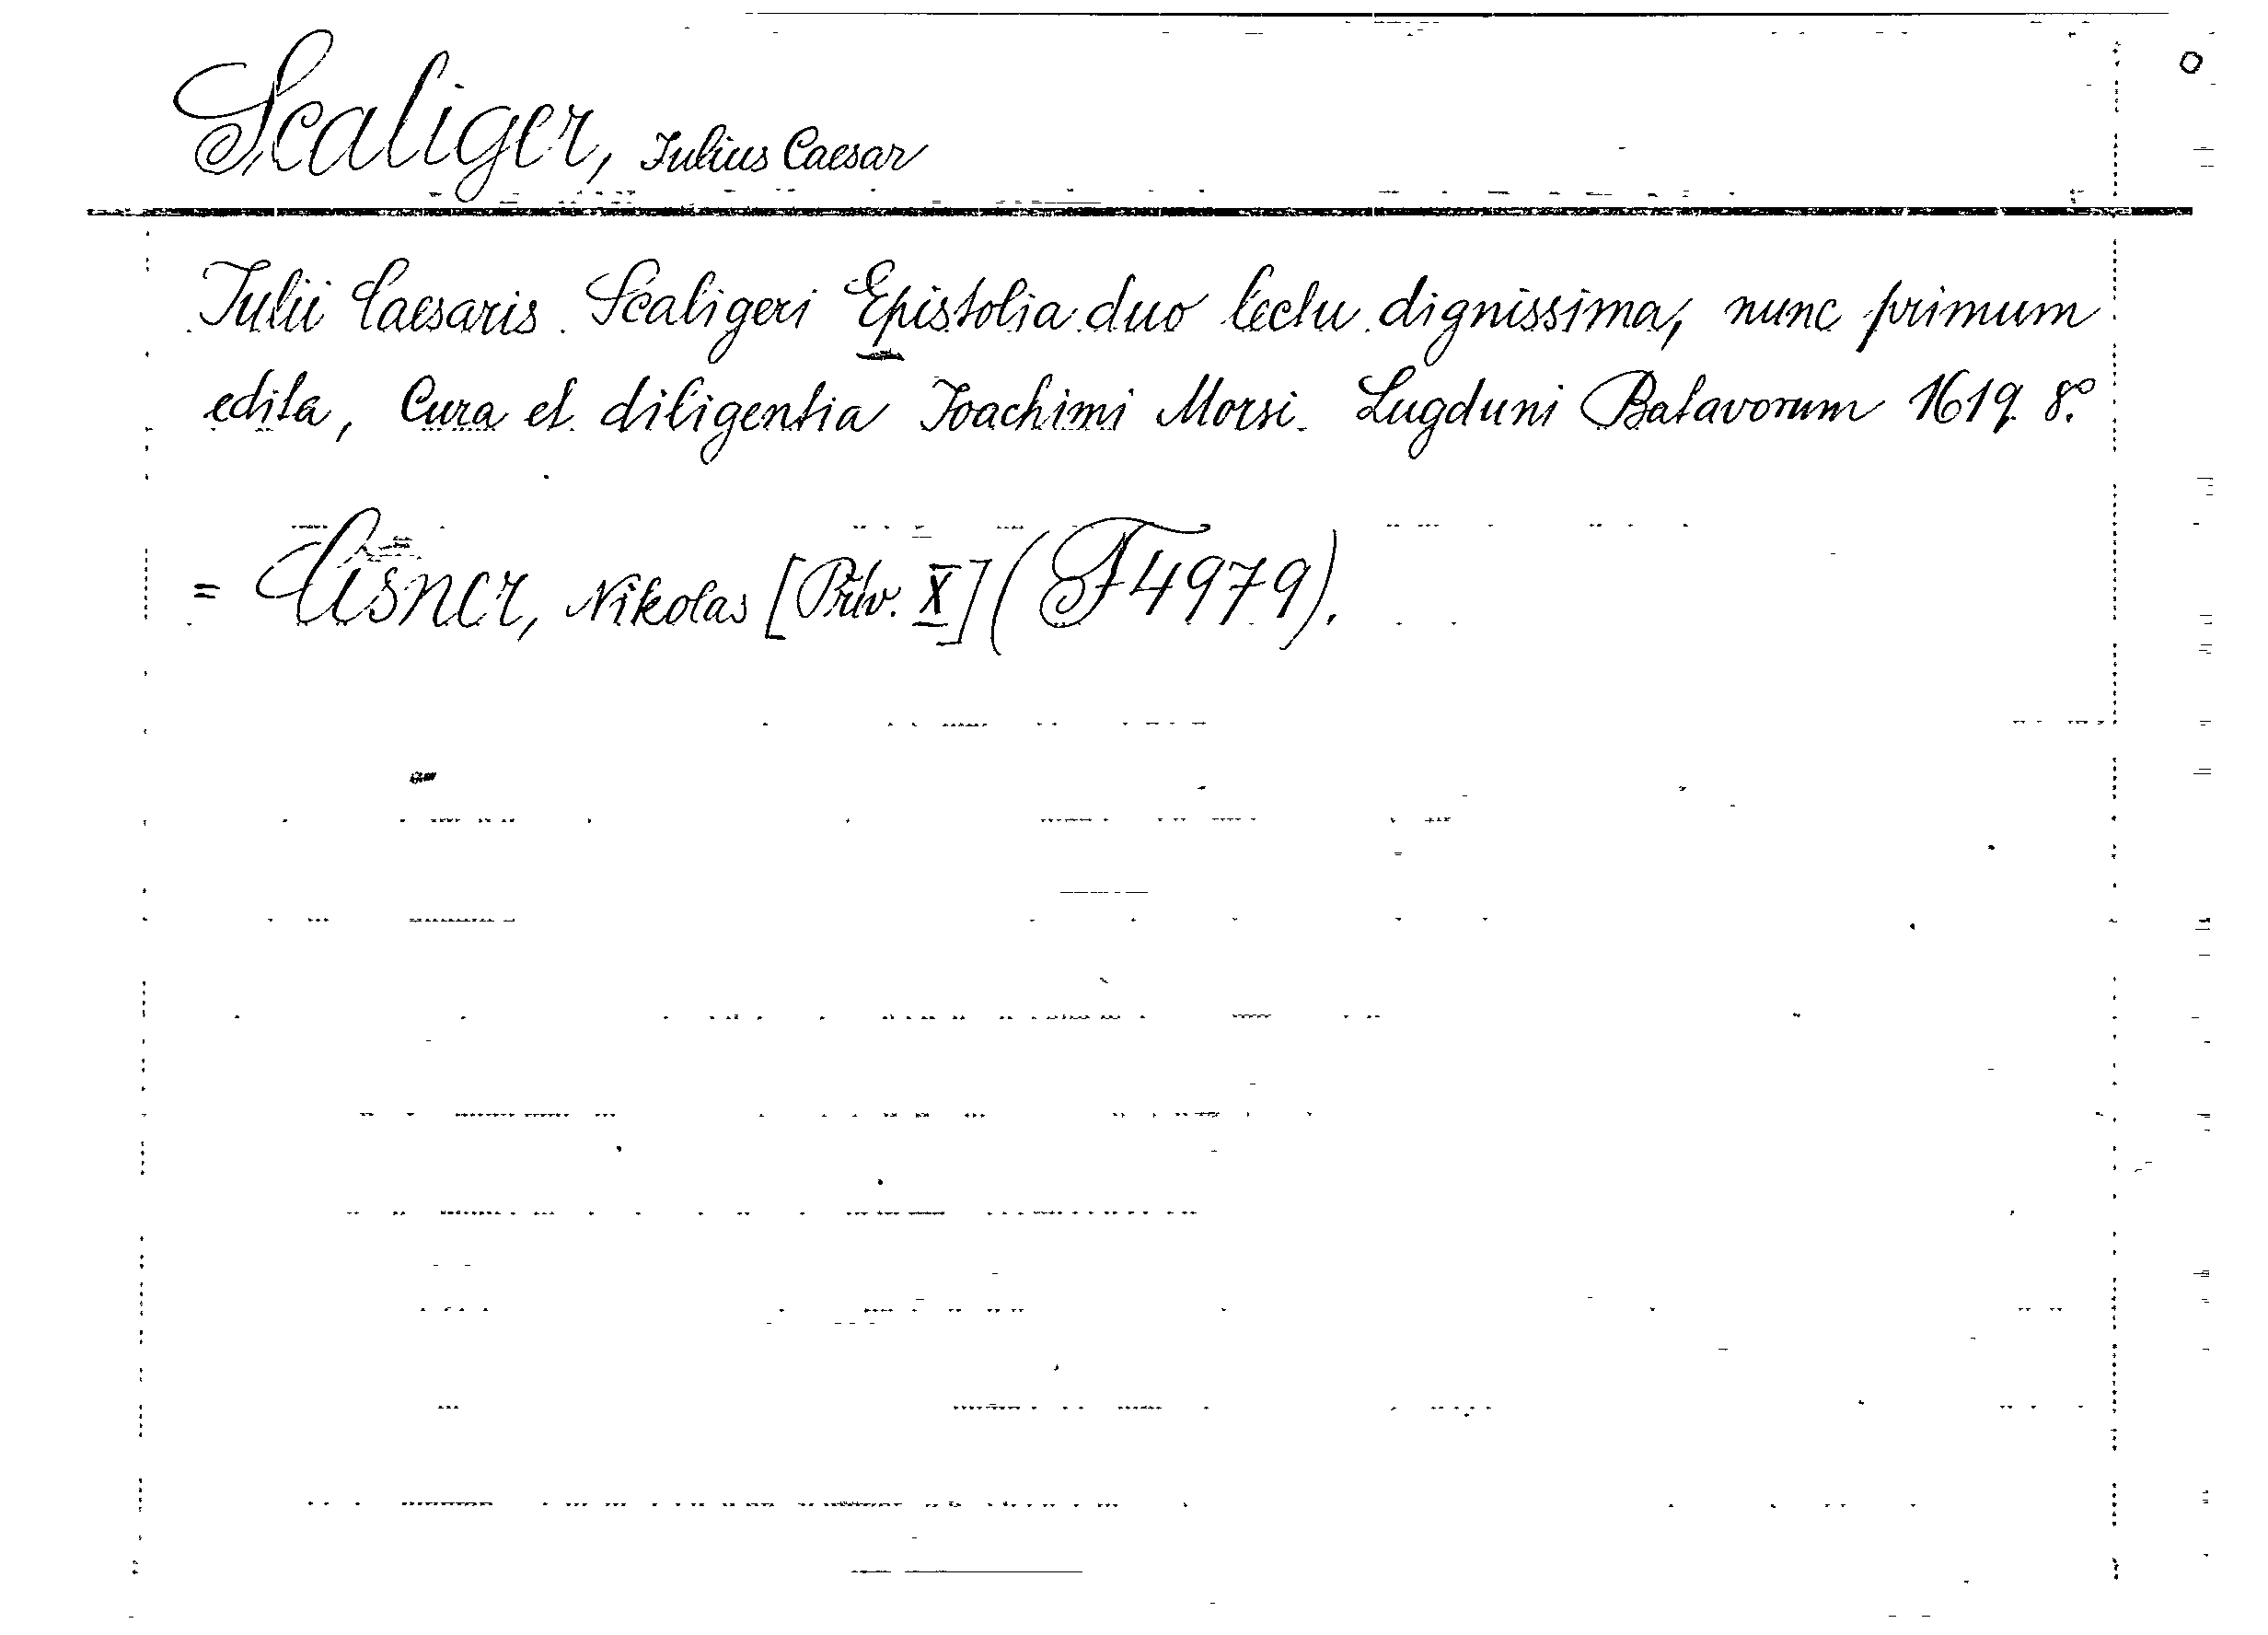 Scaliger, Iulius Caesar
Iulii Caesaris Scaligeri Epistolia duo lectu dignissima, nunc primum
edita, Cura et diligentia Ioachimi Morsi. Lugduni Batavorum 1619. 8°.
= Cisner, Nikolas [Přív. X] (F 4979).